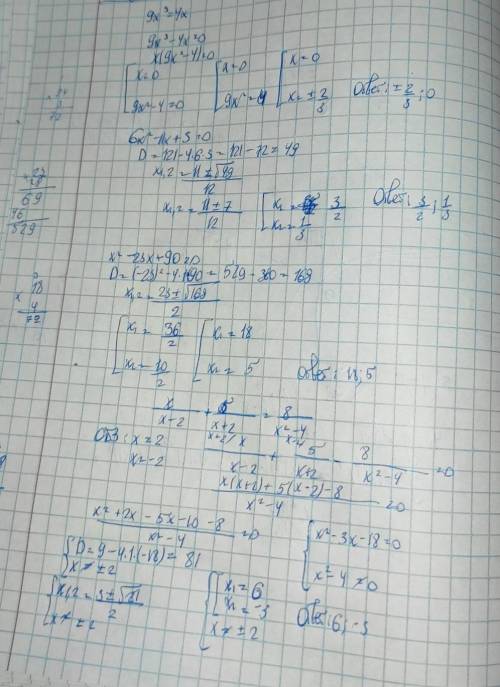 9x³=4x
9x³-4x=0
x(9x²-4)=0
[x=0 [x=0 [x=0
[9x²-4=0 [9x²=4 [x=±2/3 Ответ: ±2/3; 0
6x²-11x+3=0
D=121-4·6·3=121-72=49
x₁,₂=(11±√49)/12
x₁,₂=(11±7)/12 [x₁=3/2 Ответ: 3/2; 1/3
[x₂=1/3
69
46
529
x²-23x+90=0
D=(-23)²-4·1·90=529-360=169
x₁,₂=(23±√169)/2
18
× 4
72
[x₁=36/2 [x₁=18
[x₂=10/2 [x₂=5 Ответ: 18; 5
x/(x-2)+5/(x+2)=8/(x²-4)
ОДЗ: x=2
x=-2
x/(x-2)+5/(x+2)-8/(x²-4)=0
(x(x+2)+5(x-2)-8)/(x²-4)=0
(x²+2x-5x-10-8)/(x²-4)=0
{x²-3x-18=0
{x²-4≠0
{D=9-4·1·(-18)=81
{x≠±2
{x₁,₂=(3±√81)/2
{x≠±2
{[x₁=6
[x₂=-3
{x≠±2
Ответ: 6; -3